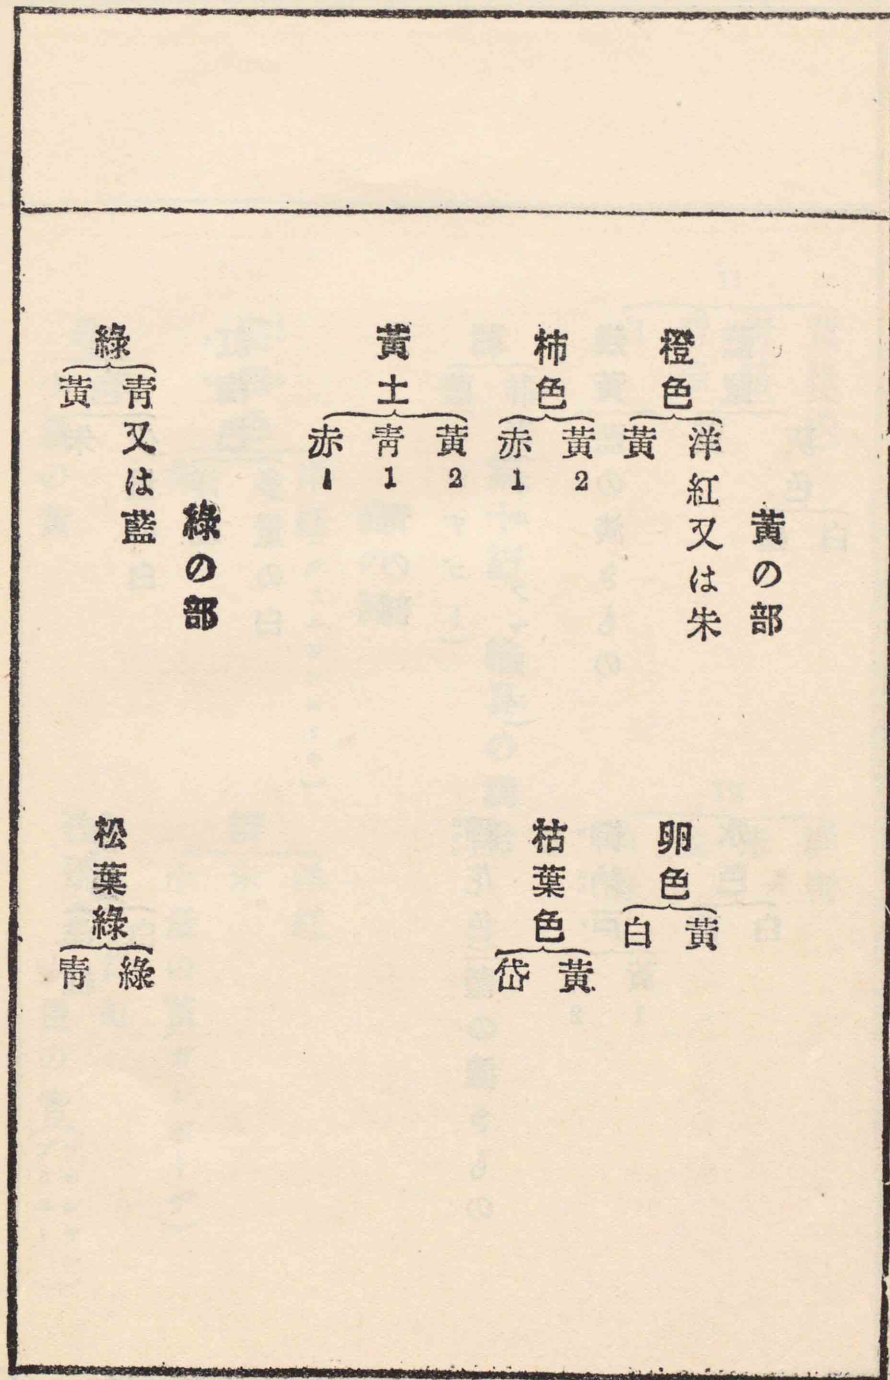 黃の部
橙色
洋紅又は朱
黃
卵色
黃
白
柿色
黃2
赤1
枯葉色
黃
岱
黃土
黃2
靑1
赤1
綠の部
綠
靑又は藍
黃
松葉綠
綠
靑